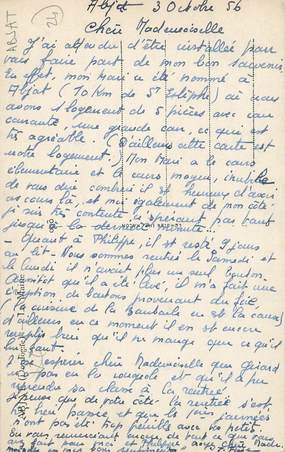 ABJAT
24
Abjat 3 Octobre 56
Chère Mademoiselle
J'ai attendu d'être installée pour
vous faire part de mon bon souvenir.
En effet, mon Mari a été nommé à
Abjat (10 Km de St ) où nous
avons 1 logement de 5 pièces avec eau
courante, une grande cour, ce qui est
très agréable. (D'ailleurs cette carte est
notre logement.) Mon Mari a le cours
élémentaire et le cours moyen, inutile
de vous dire combien il est heureux d'avoir
ces cours là, et moi également de mon côté
j'en suis très contente, n'espérant pas tant
jusqu'à la dernière minute...
- Quant à Philippe, il est resté 9 jours
au lit - Nous sommes rentrés le Samedi et
le lundi il n'avait plus un seul bouton.
Aussitôt qu'il a été levé, il m'a fait une
éruption de boutons provenant du foie
(la cuisine de la en est la cause)
d'ailleurs en ce moment il en est encore
rempli bien qu'il ne mange que ce qu'il
faut.
J'ose espérer chère Mademoiselle que Gérard
n'a pas eu la rougeole et qu'il a pu
reprendre sa classe à la rentrée.
Je pense que de votre côté la rentrée s'est
bien passée, et que les 1ères journées
n'ont pas été trop pénibles avec les petits.
En vous remerciant encore de tout ce que vous
avez fait pour moi et Philippe, chère